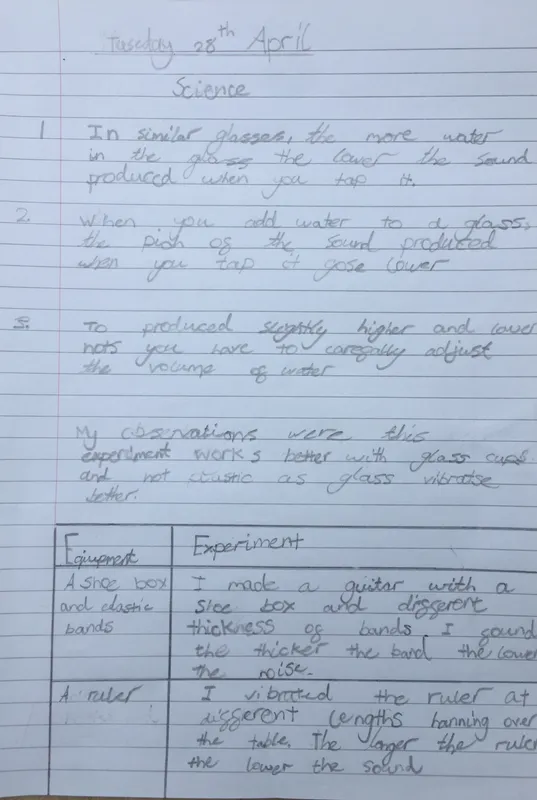 Tuseday 28th April
Science
1 In similar glasses, the more water
in the glass the lower the sound
produced when you tap it.
2. When you add water to a glass,
the pich of the sound produced
when you tap it gose lower
3. To produced slightly higher and lower
nots you have to caregally adjust
the volume of water
My observations were this
experiment works better with glass cups
and not plastic as glass vibratse
better.
Equipment Experiment
A shoe box I made a guitar with a
and elastic shoe box and different
bands thickness of bands. I found
the thicker the band the lower
the noise.
A ruler I vibrated the ruler at
different lengths hanning over
the table. The longer the ruler
the lower the sound